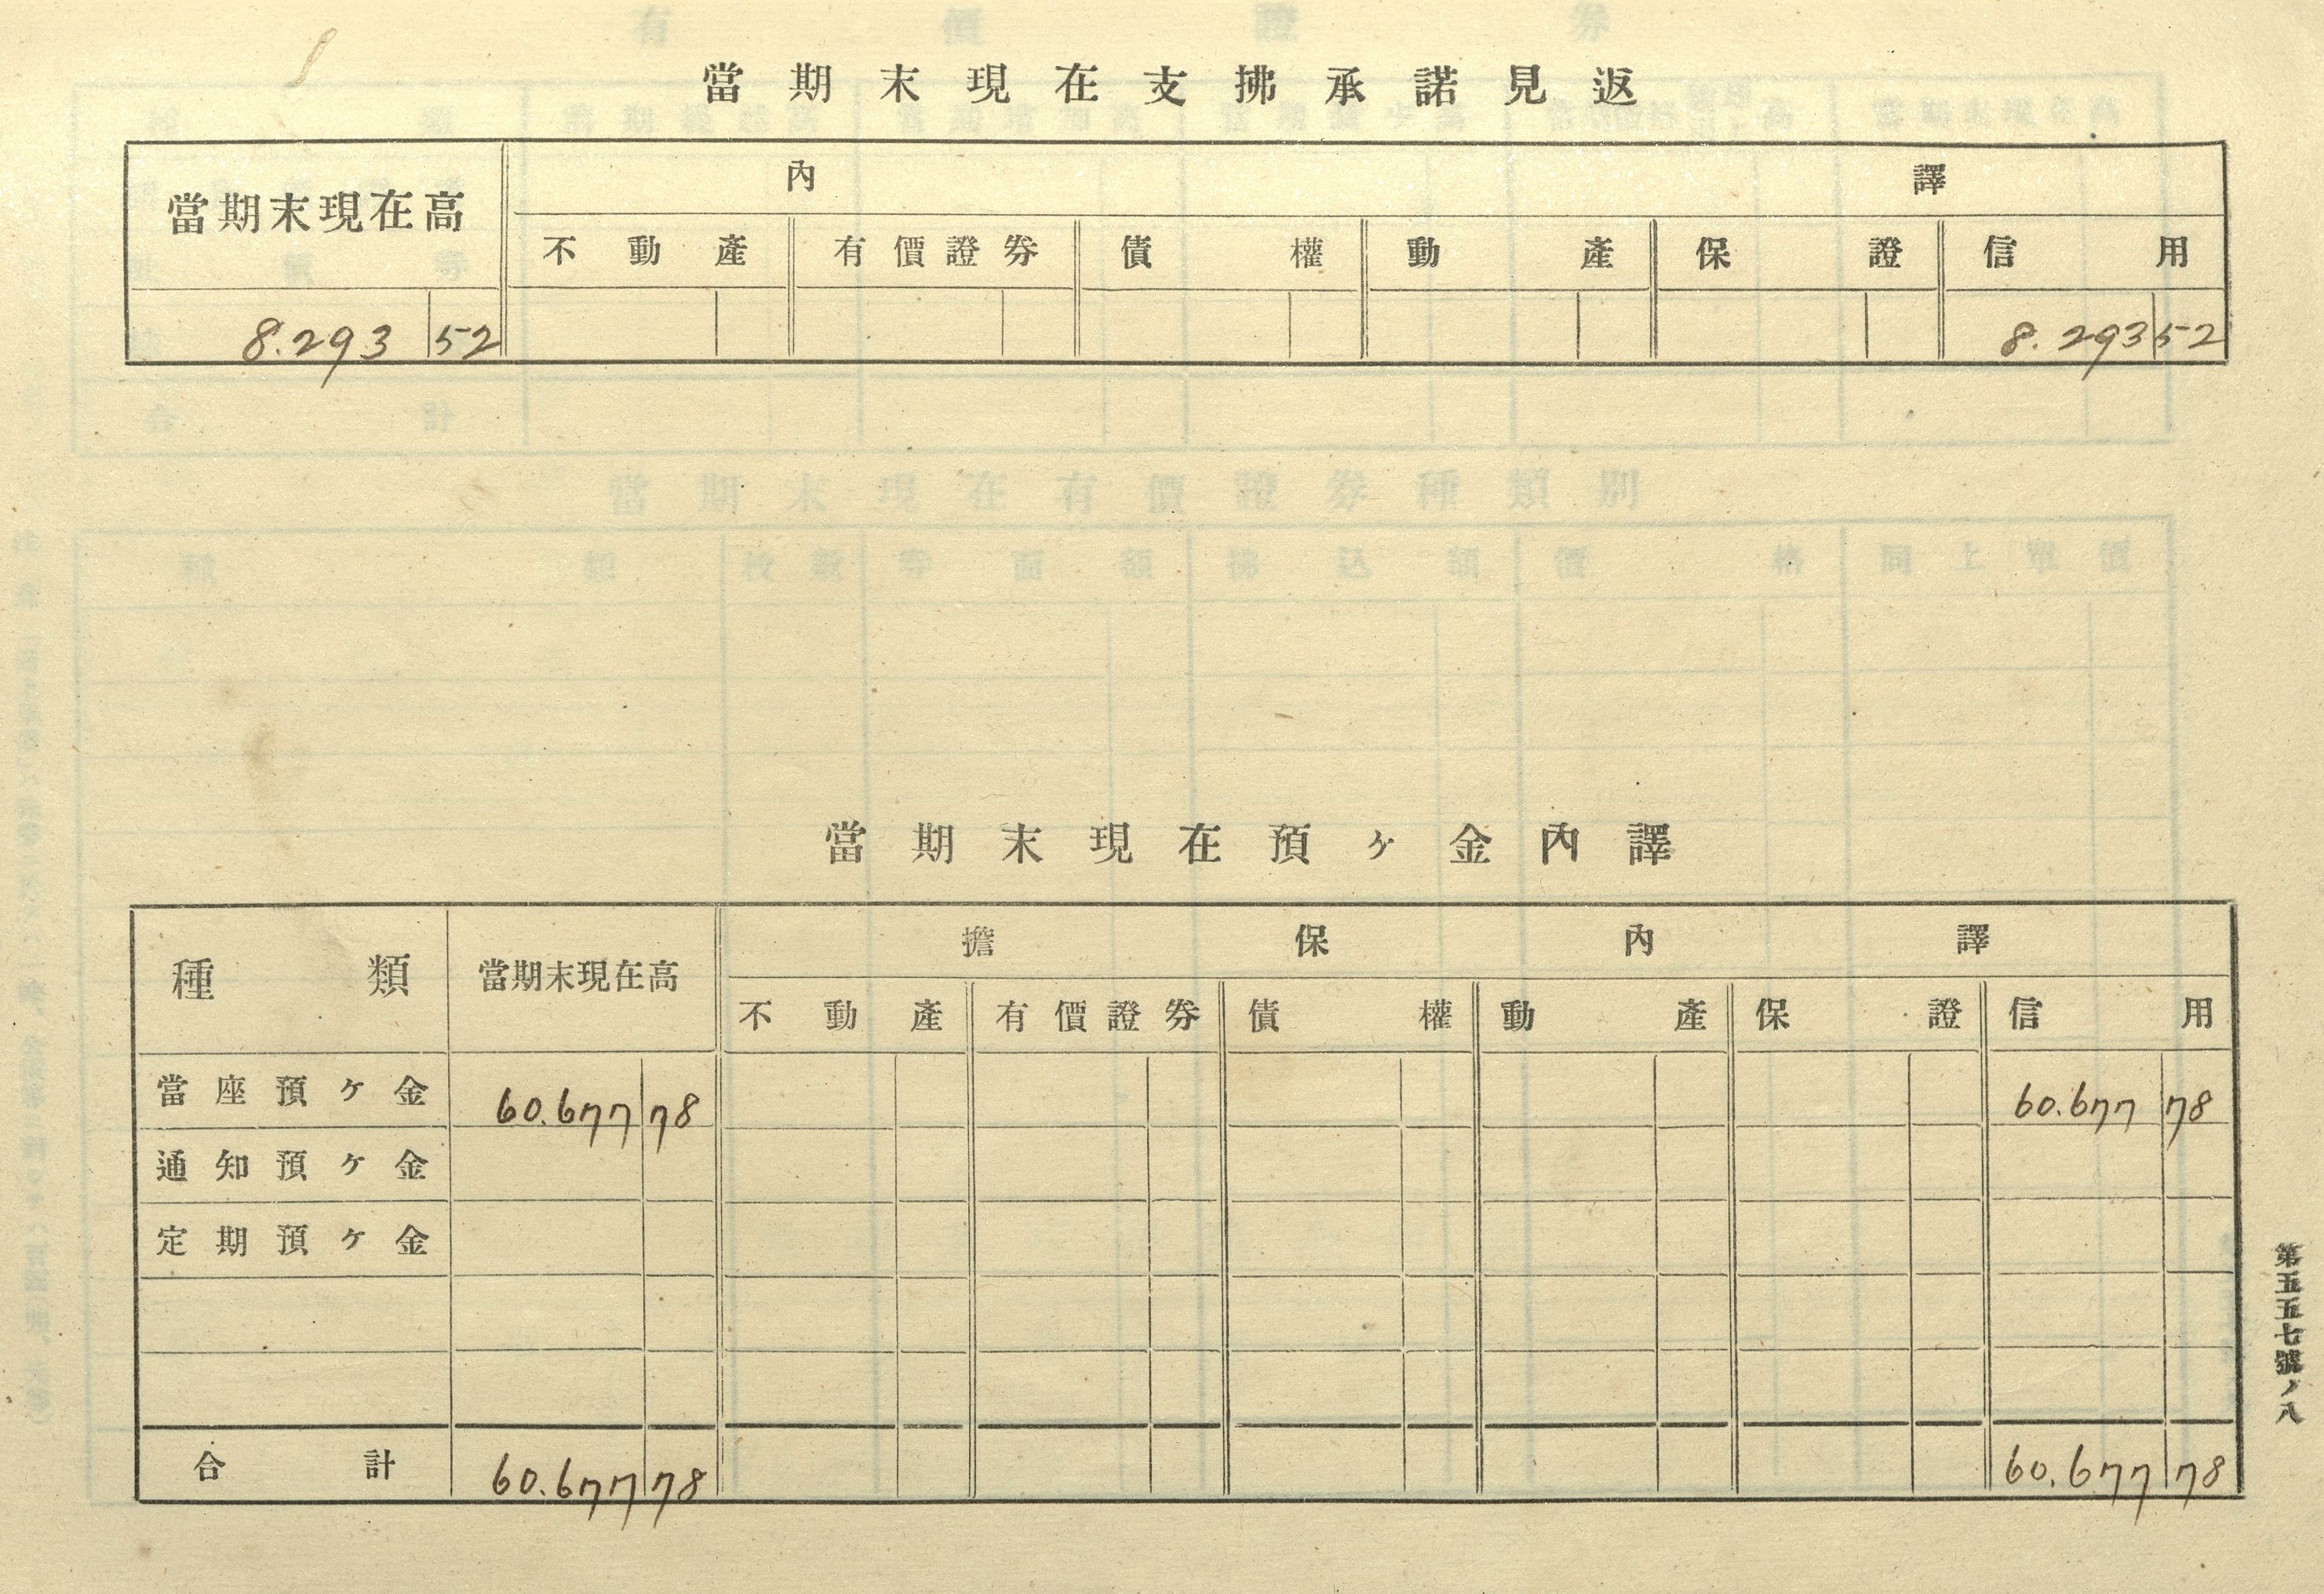 當期末現在支拂承諾見返
當期末現在高 內譯
不動產 有價證券 債權 動產 保證 信用
8.293 52 8.293 52
當期末現在預ヶ金內譯
種類 當期末現在高 擔保內譯
不動產 有價證券 債權 動產 保證 信用
當座預ヶ金 60.677 78 60.677 78
通知預ヶ金
定期預ヶ金
合計 60.677 78 60.677 78
第五五七號ノ八